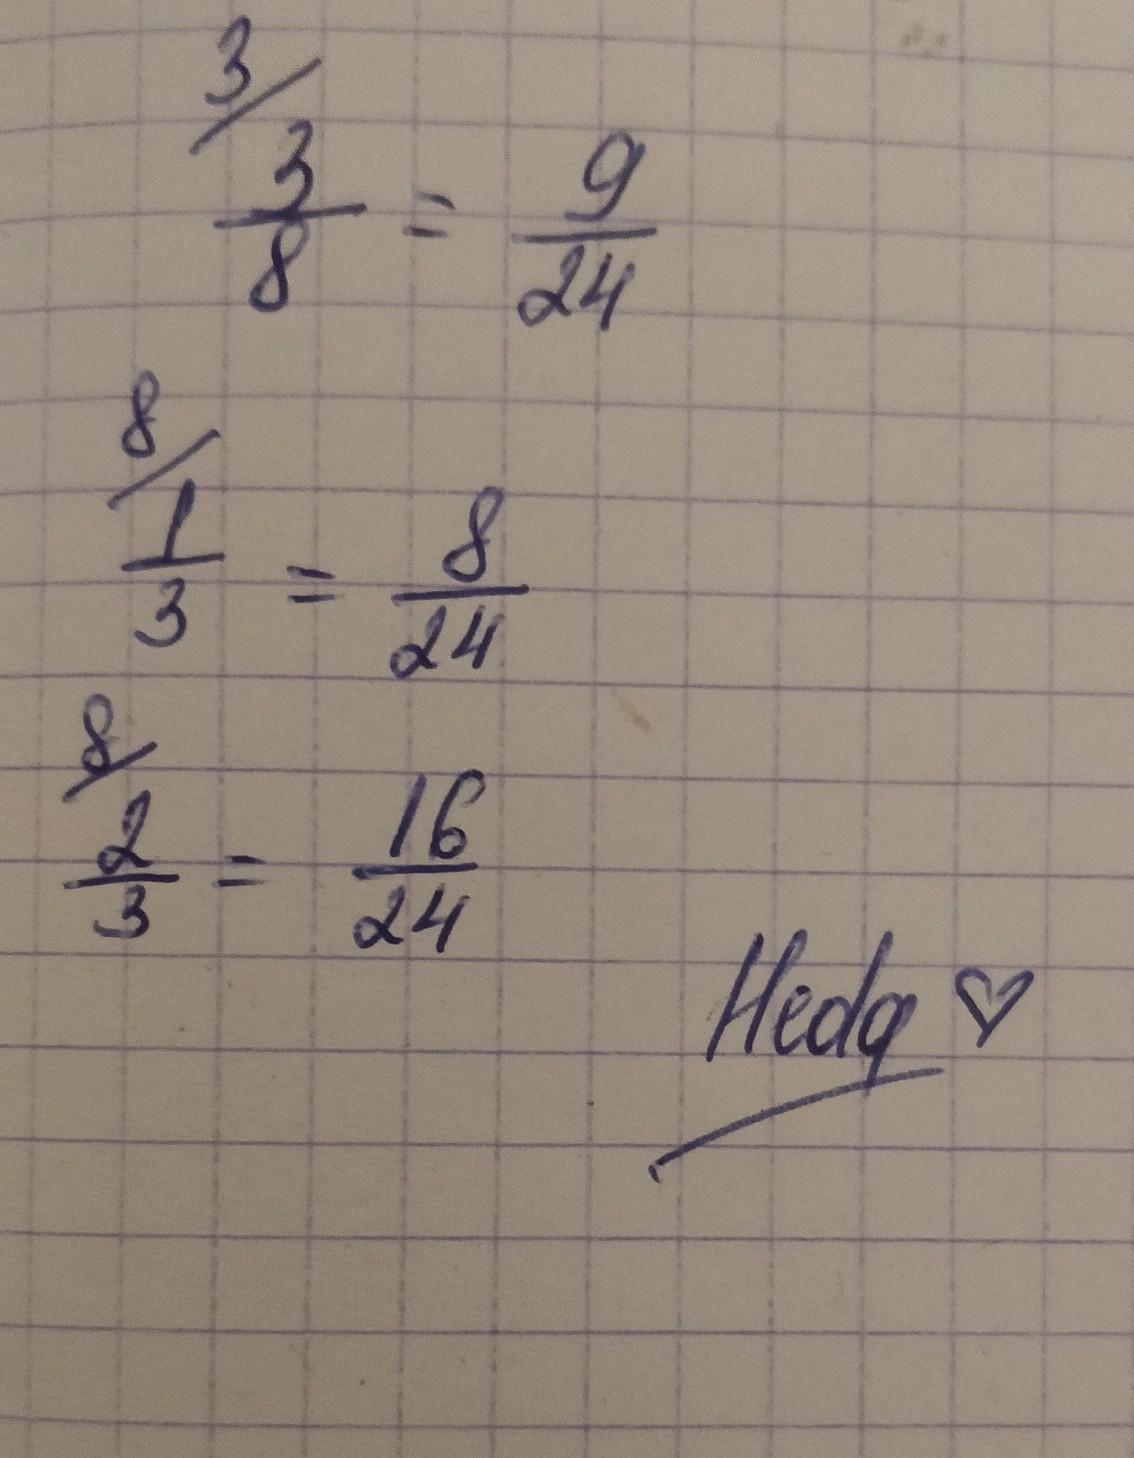 3/ 3/8 = 9/24
8/ 1/3 = 8/24
8/ 2/3 = 16/24
Heda ♡